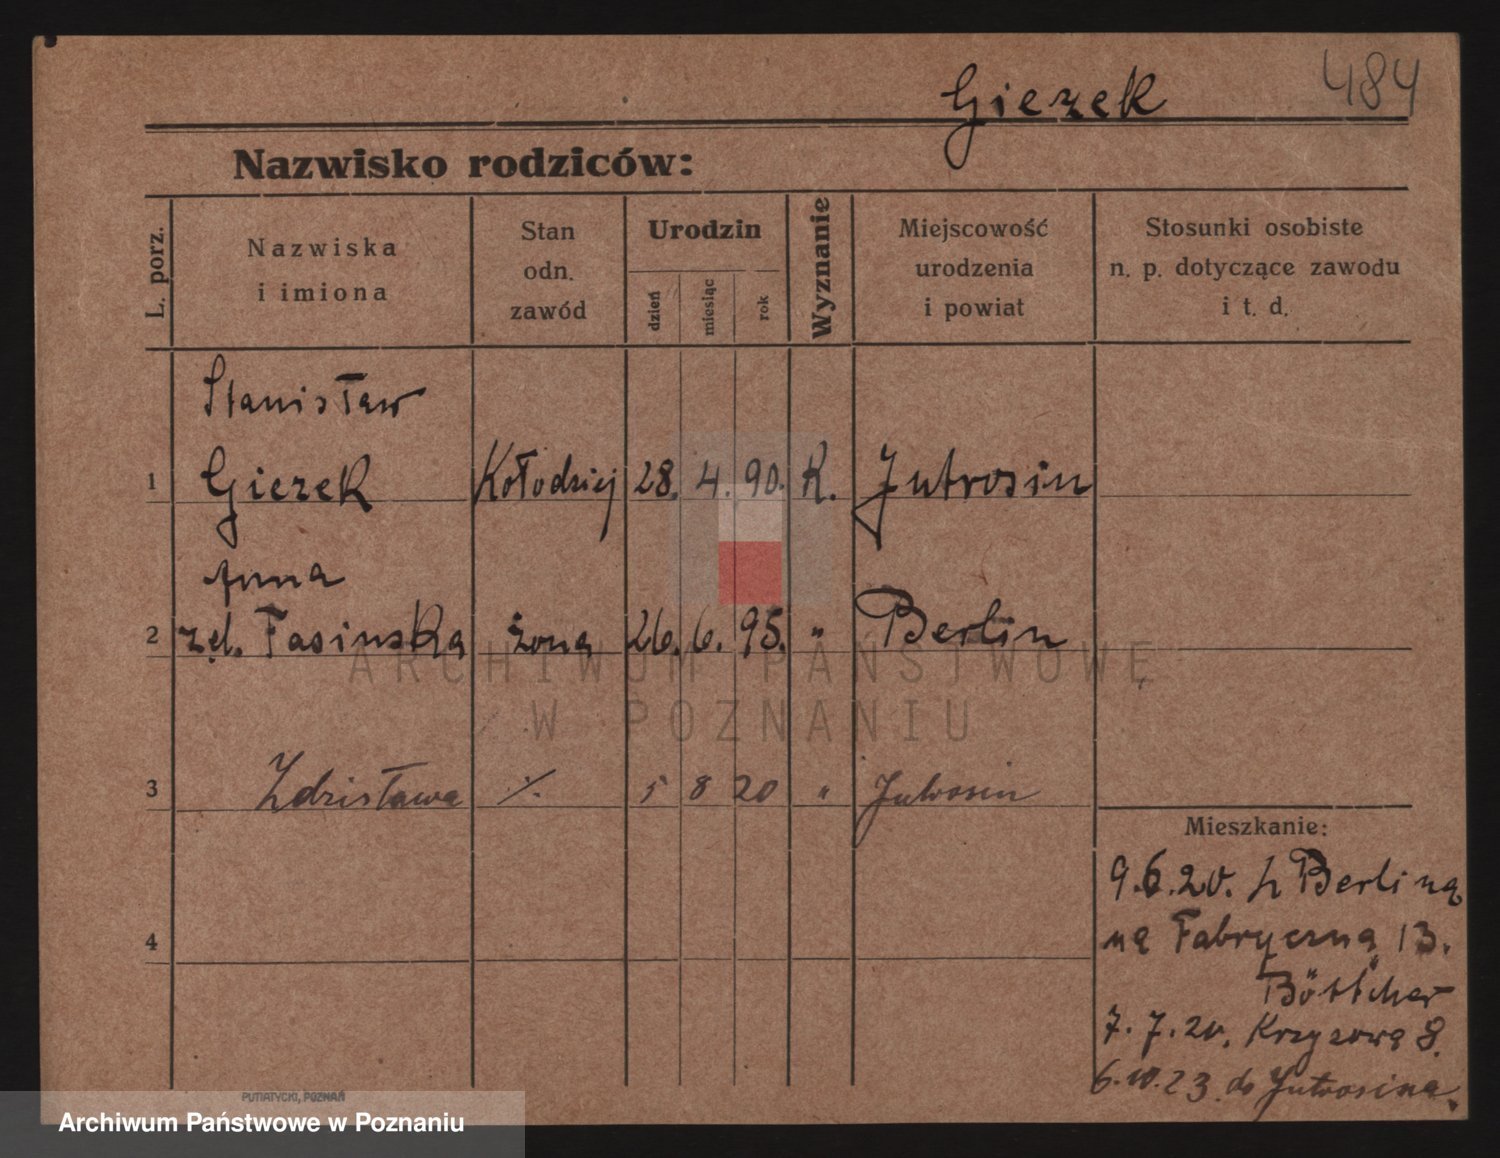 Giezek 484
Nazwisko rodziców:
L. porz.
Nazwiska
i imiona
Stan
odn.
zawód
Urodzin
dzień
miesiąc
rok
Wyznanie
Miejscowość
urodzenia
i powiat
Stosunki osobiste
n. p. dotyczące zawodu
i t. d.
Stanisław
1 Giezek Kołodziej 28. 4. 90. K. Jutrosin
Anna
2 Fasinska żona 26. 6. 95. " Berlin
ARCHIWUM PAŃSTWOWE
W POZNANIU
3 Zdzisława ./. 5 8 20 " Jutrosin
Mieszkanie:
9.6.20. z Berlina
4
na Fabryczną 13.
Böttcher
7.7.20. Krzyzowa 8.
6.10.23. do Jutrosina.
PUTIATYCKI, POZNAŃ
Archiwum Państwowe w Poznaniu